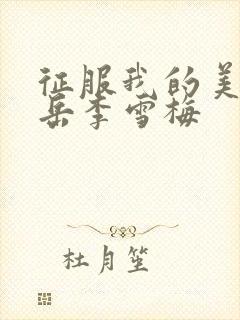 征服我的美
岳李雪梅
杜月笙